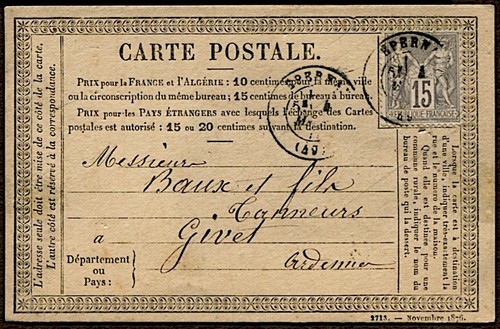 CARTE POSTALE.
PRIX pour la FRANCE et l'ALGÉRIE: 10 centimes pour la même ville
ou la circonscription du même bureau; 15 centimes de bureau à bureau.
PRIX pour les PAYS ÉTRANGERS avec lesquels l'échange des Cartes
postales est autorisé: 15 ou 20 centimes suivant la destination.
EPERN
5E
4
15
RÉPUBLIQUE FRANÇAISE
EPERN
5E
4
(49)
L'adresse seule doit être mise de ce côté de la carte.
L'autre côté est réservé à la correspondance.
Messieurs
Baux et fils
Tanneurs
à
Givet
Département
ou
Pays:
Ardennes
Lorsque la carte est à destination
d'une ville, indiquer très-exactement la
rue et le numéro de la maison.
Quand elle est destinée pour une
commune rurale, indiquer le nom du
bureau de poste qui la dessert.
2713. — Novembre 1876.